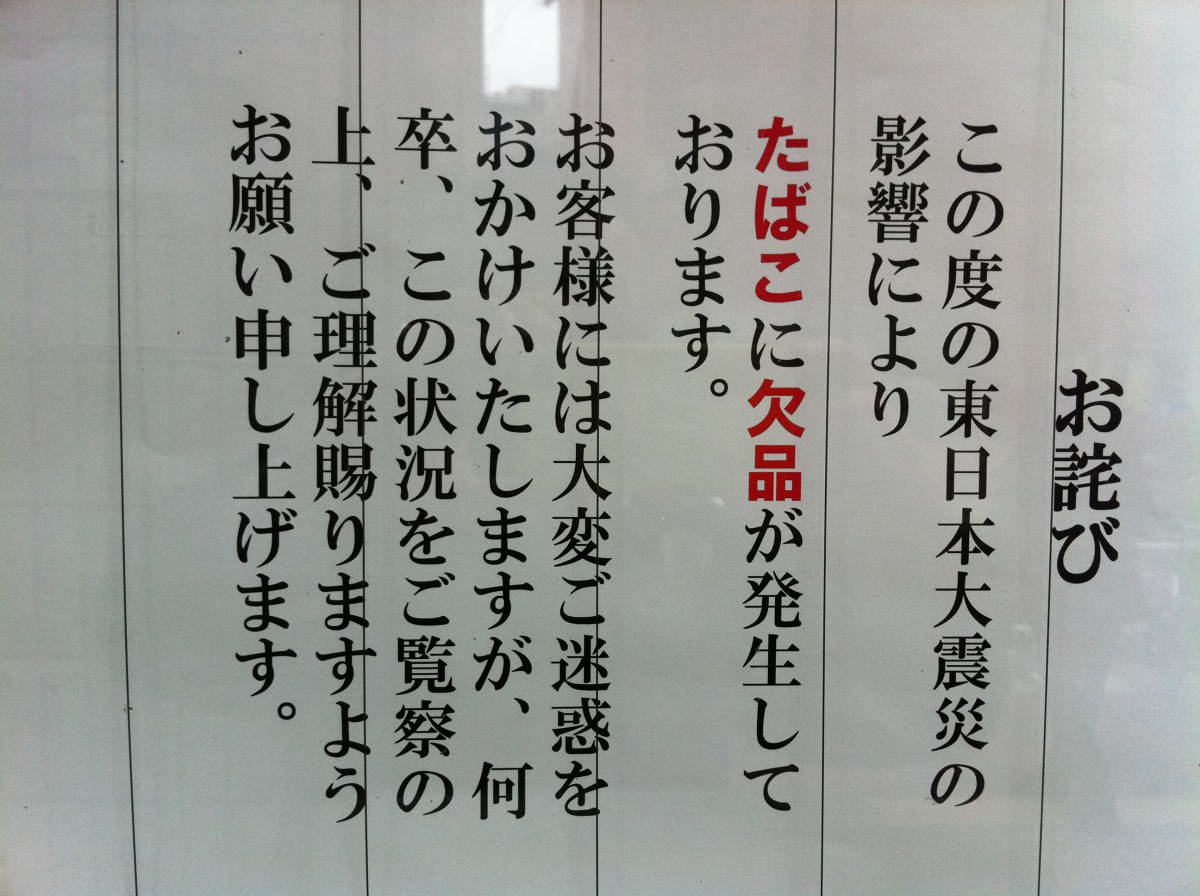 お詫び
この度の東日本大震災の
影響により
たばこに欠品が発生して
おります。
お客様には大変ご迷惑を
おかけいたしますが、何
卒、この状況をご覧察の
上、ご理解賜りますよう
お願い申し上げます。